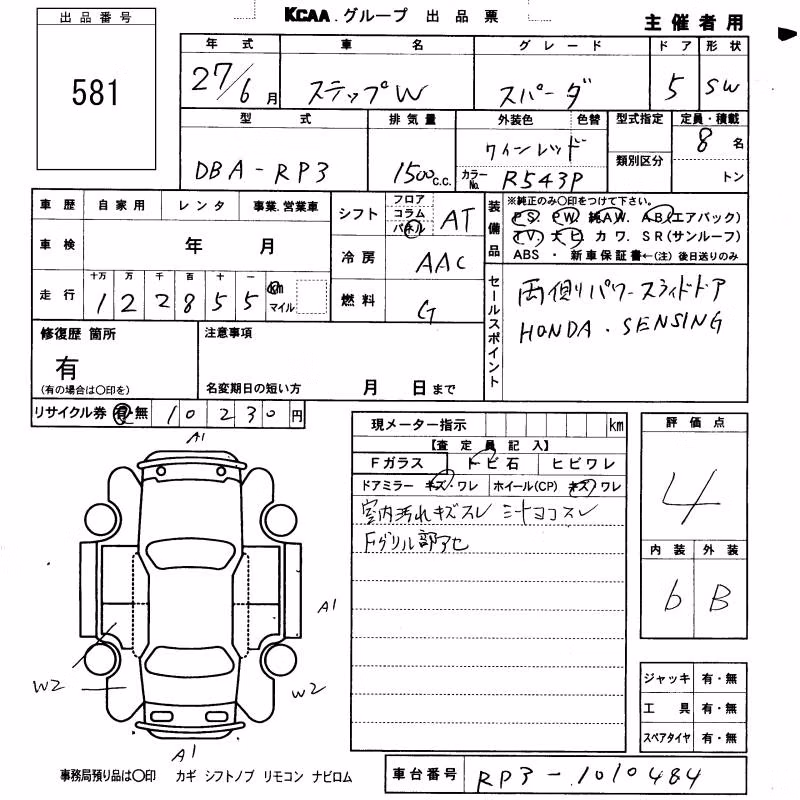 KCAA.グループ 出品票
主催者用
出品番号
581
年式 車名 グレード ドア 形状
27/6月 ステップW スパーダ 5 SW
型式 排気量 外装色 色替 型式指定 定員・積載
DBA-RP3 1500c.c. ワインレッド 8名
カラーNo. R543P 類別区分 トン
車歴 自家用 レンタ 事業.営業車
車検 年 月
走行 十万 万 千 百 十 一
122855 km マイル
シフト フロア コラム パネル AT
冷房 AAC
燃料 G
装備品 ※純正のみ○印をつけて下さい。
PS. PW. 純AW. AB(エアバック)
TV. ナビ カワ. SR(サンルーフ)
ABS ・ 新車保証書←(注) 後日送りのみ
セールスポイント
両側パワースライドドア
HONDA・SENSING
修復歴 箇所
有
(有の場合は○印を)
注意事項
名変期日の短い方 月 日まで
リサイクル券 有・無 10230円
現メーター指示 km
【査定員記入】
Fガラス トビ石 ヒビワレ
ドアミラー キズ・ワレ ホイール(CP) キズ/ワレ
室内汚れキズスレ シートヨコスレ
Fグリル部アセ
評価点
4
内装 外装
6 B
ジャッキ 有・無
工具 有・無
スペアタイヤ 有・無
A1
A1
W2
W2
A1
事務局預り品は○印 カギ シフトノブ リモコン ナビロム
車台番号 RP3-1010484